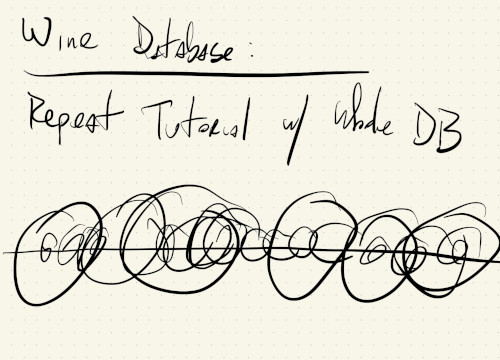 Wine Database:
Repeat Tutorial w/ whole DB